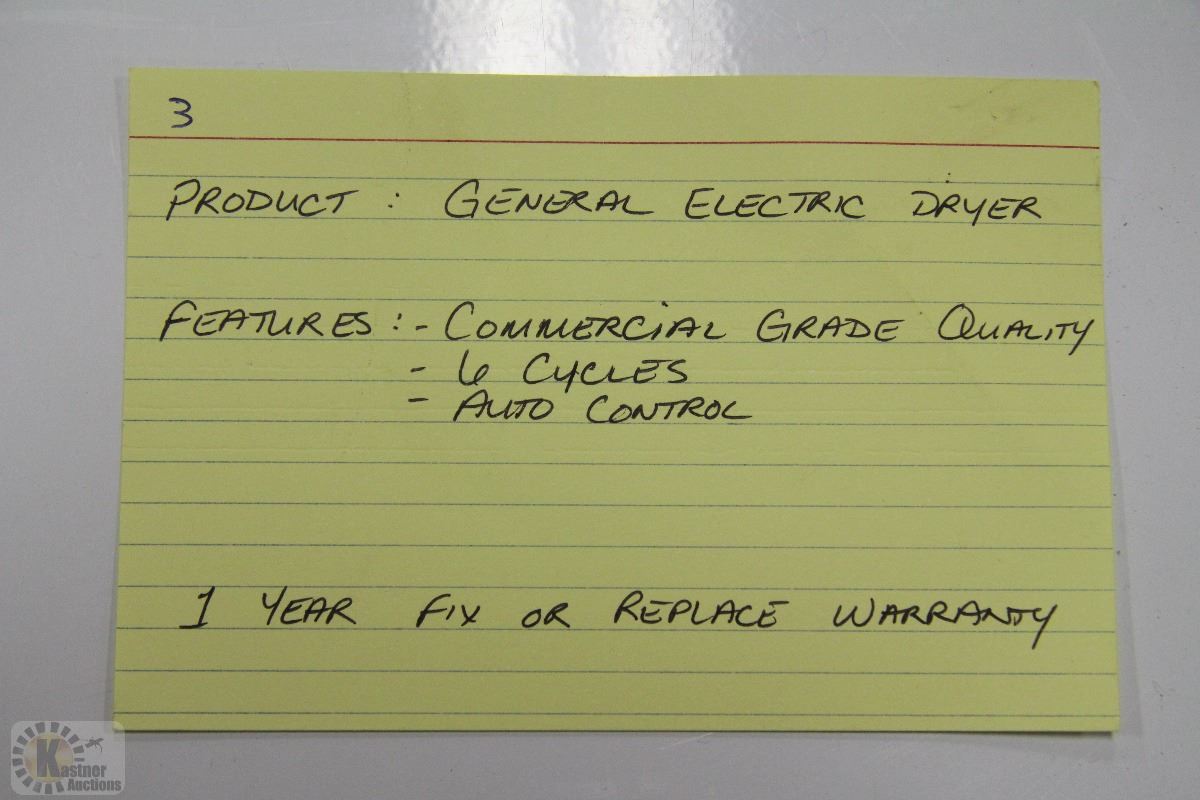 3
PRODUCT : GENERAL ELECTRIC DRYER
FEATURES : - COMMERCIAL GRADE QUALITY
- 6 CYCLES
- AUTO CONTROL
1 YEAR FIX OR REPLACE WARRANTY
Kastner
Auctions